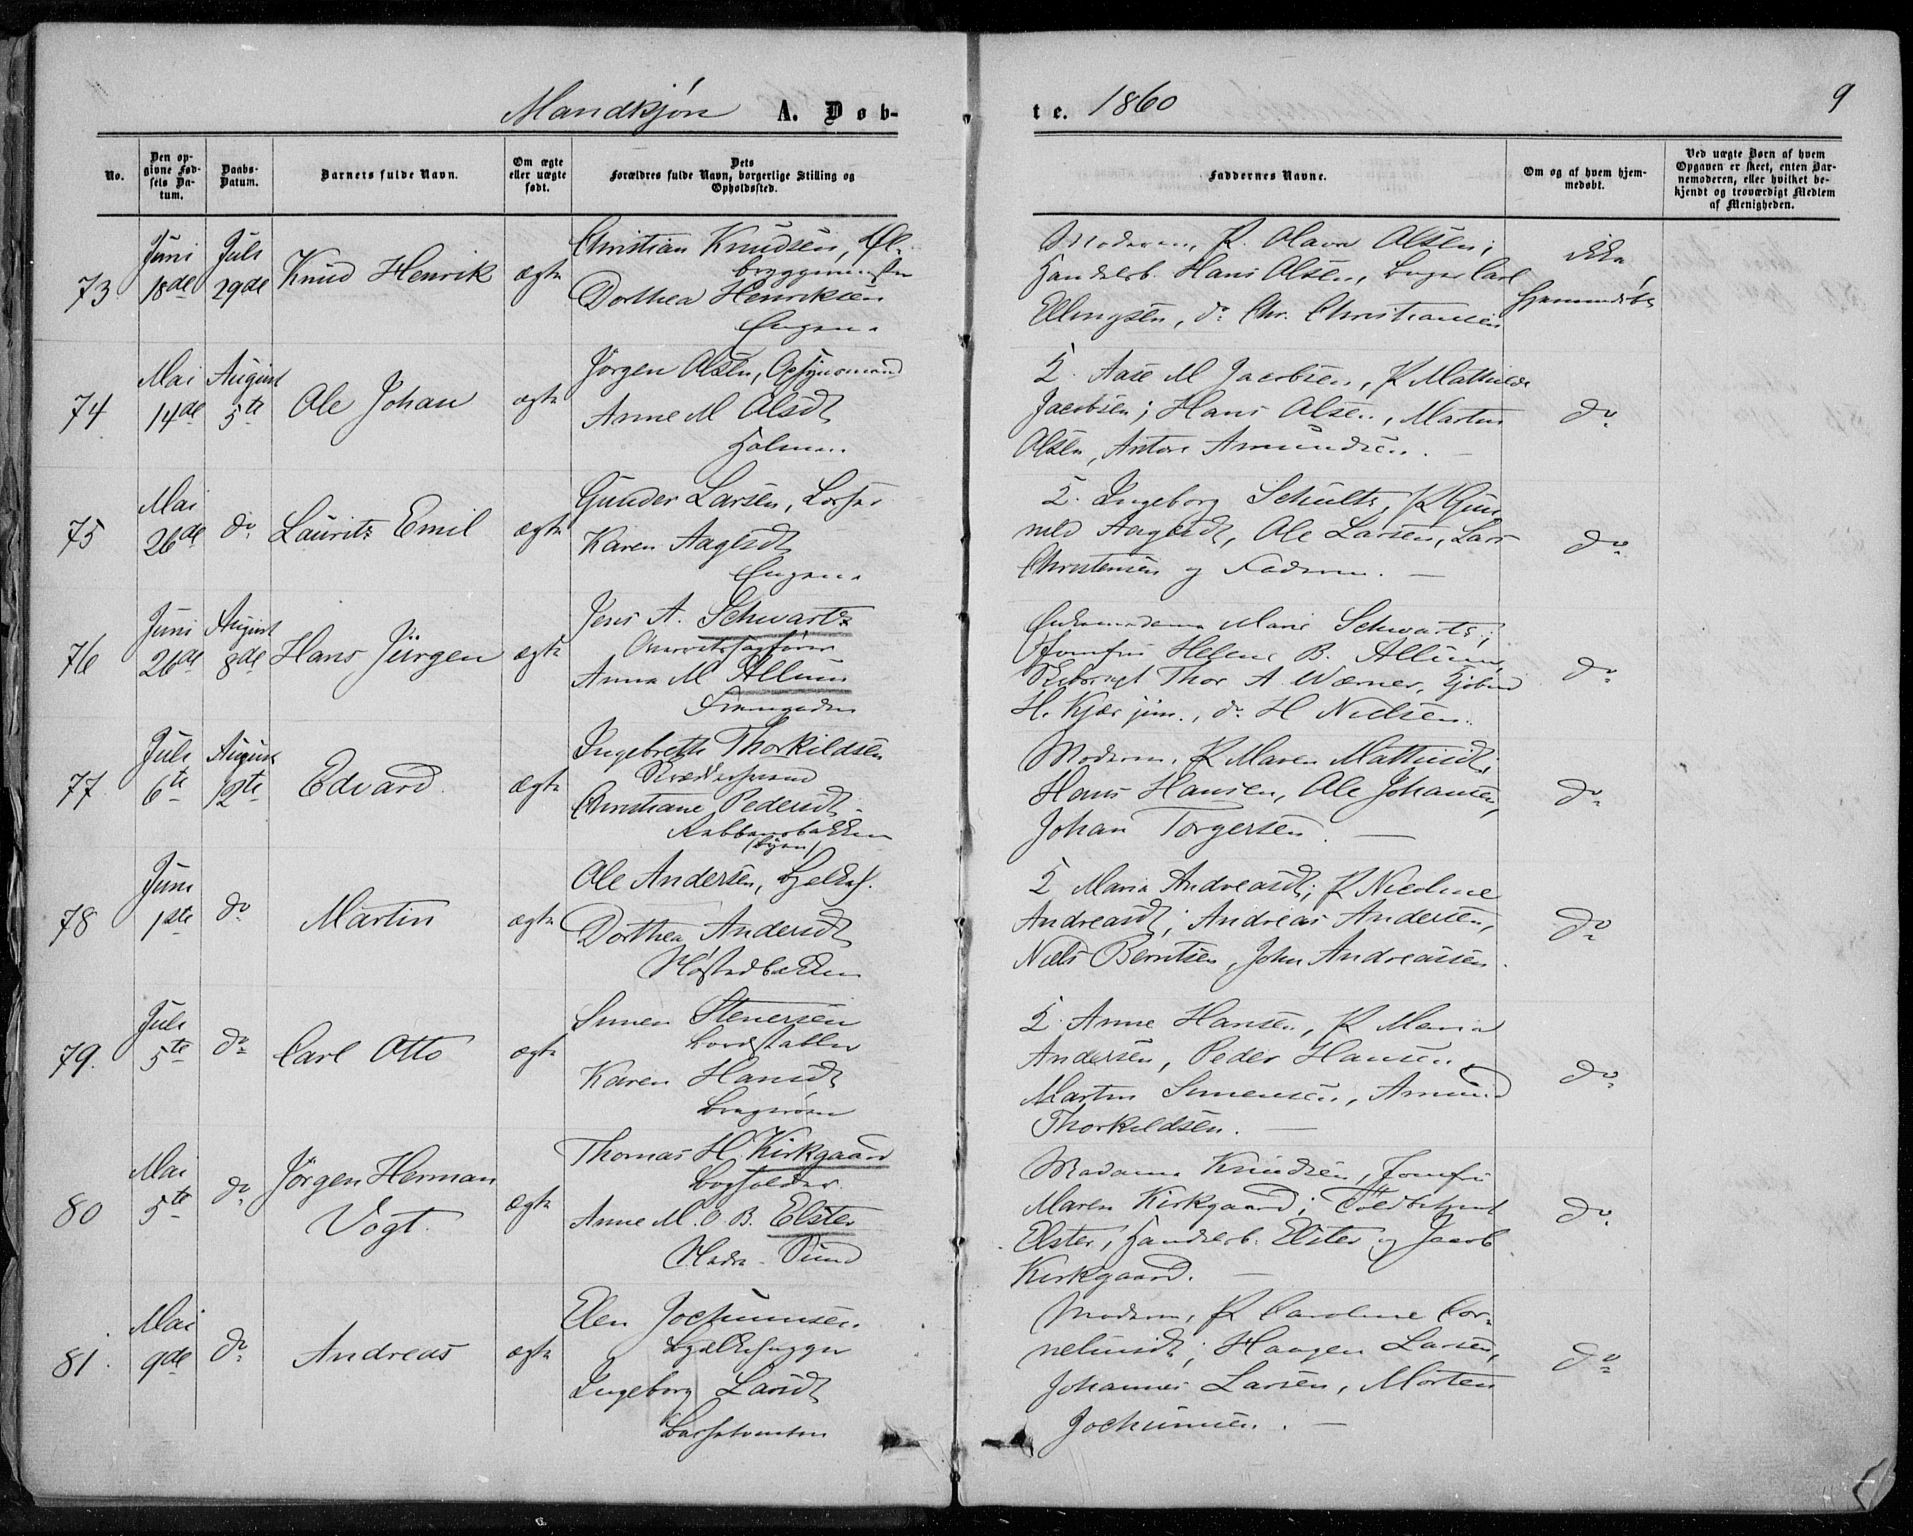 Mandkjøn A. Døb-
te. 1860
9
No.
Den opgivne Fødsels Datum.
Daabs-Datum.
Barnets fulde Navn.
Om ægte eller uægte født.
Dets Forældres fulde Navn, borgerlige Stilling og Opholdssted.
Faddernes Navne.
Om og af hvem hjemmedøbt.
Ved uægte Børn af hvem Opgaven er skeet, enten Barnemoderen, eller hvilket bekjendt og troværdigt Medlem af Menigheden.
73
Juni 18de
Juli 29de
Knud Henrik
ægte
Christian Knudsen, Øl-
bryggemester
Dorthea Henriksen
Engen.
Moderen, P. Olava Olsen;
Handelsb. Hans Olsen, Bager Carl
Ellingsen, do Chr. Christiansen
ikke
hjemmedøbt
74
Mai 14de
August 5te
Ole Johan
ægte
Jörgen Olsen, Opsynsmand
Anne M Olsdt
Holmen.
K. Aase M Jacobsen, P Mathilde
Jacobsen; Hans Olsen, Martin
Olsen, Anton Amundsen.
do
75
Mai 26de
do
Laurits Emil
ægte
Gunder Larsen, Lods
Karen Aagesdt
Engen.
K. Ingeborg Schults, P Gun-
nild Aagesdt, Ole Larsen, Lars
Christensen og Faderen. —
do
76
Juni 26de
August 8de
Hans Jürgen
ægte
Jens A. Schwartz
Overretssagfører
Anna M Allum
Strømgaden
Enkemadame Marie Schwartz;
Jomfru Helene B. Allum,
Thor A Wærner, Kjøbmd
H. Kjær jun., do H Nielsen.
do
77
Juli 6te
August 12te
Edvard
ægte
Ingebreth Thorkildsen
Skræddersvend
Christiane Pedersdt
(Byen)
Moderen, P Maren Mathisdt,
Hans Hansen, Ole Johansen,
Johan Torgersen. —
do
78
Juni 1ste
do
Martin
ægte
Ole Andersen, Bjelkeh.
Dorthea Andersdt
Møstadbakken
K Maria Andreasdt; P Nicoline
Andreasdt; Andreas Andersen,
Niels Berntsen, John Andreassen.
do
79.
Juli 5te
do
Carl Otto
ægte
Simen Stenersen
Bordstabler
Karen Hansdt
Bragerøen
K. Anne Hansen, P Maria
Andersen, Peder Hansen,
Martin Simensen, Amund
Thorkildsen. —
do
80
Mai 5te
do
Jørgen Herman
Vogt.
ægte
Thomas H. Kirkgaard
Bogholder.
Anne M. O B. Elster
Nedre Sund
Madame Knudsen, Jomfru
Maren Kirkgaard; Toldbetjent
Elster, Handelsb. Elster og Jacob
Kirkgaard. —
do
81.
Mai 9de
do
Andreas
ægte
Elen Jochumsen.
Bjælkehugger
Ingeborg Larsdt
Moderen, P Caroline Cor-
neliusdt; Haagen Larsen,
Johannes Larsen, Morten
Jochumsen. —
do